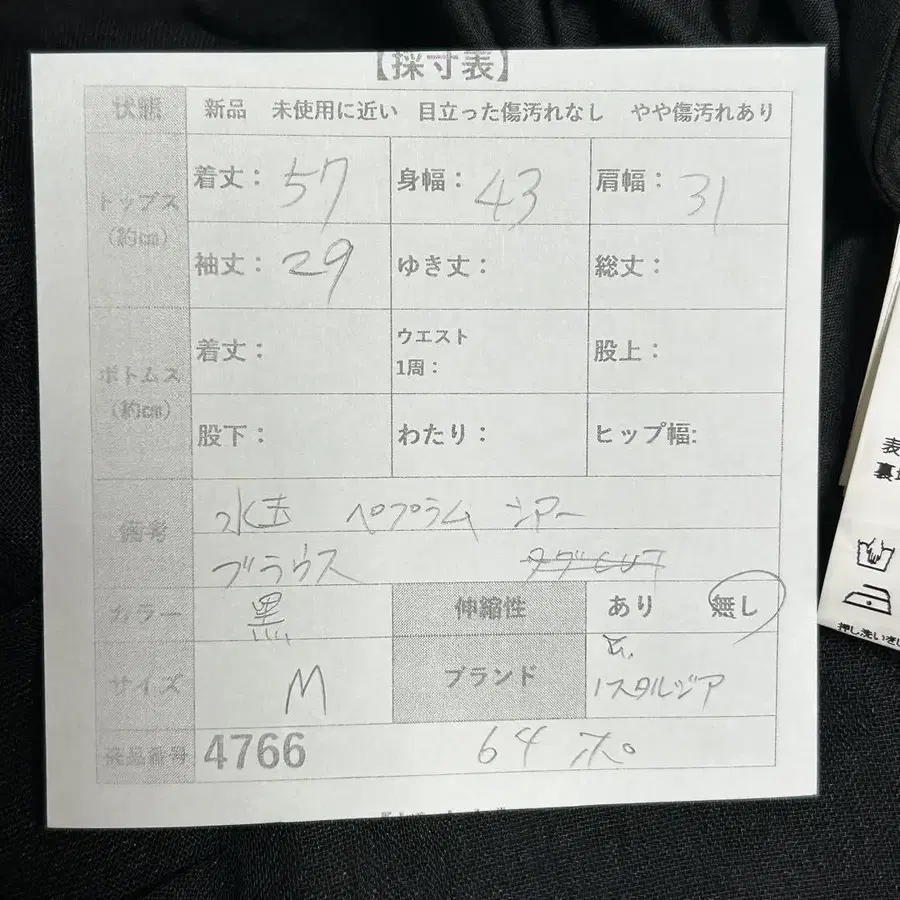 【採寸表】
状態 新品 未使用に近い 目立った傷汚れなし やや傷汚れあり
トップス
(約cm)
着丈： 57 身幅： 43 肩幅： 31
袖丈： 29 ゆき丈： 総丈：
ボトムス
(約cm)
着丈： ウエスト
1周： 股上：
股下： わたり： ヒップ幅:
備考 水玉 ペプラム シアー
ブラウス タグCUT
カラー 黒 伸縮性 あり 無し
サイズ M ブランド
ノスタルジア
商品番号 4766 64 ポ
表
裏地